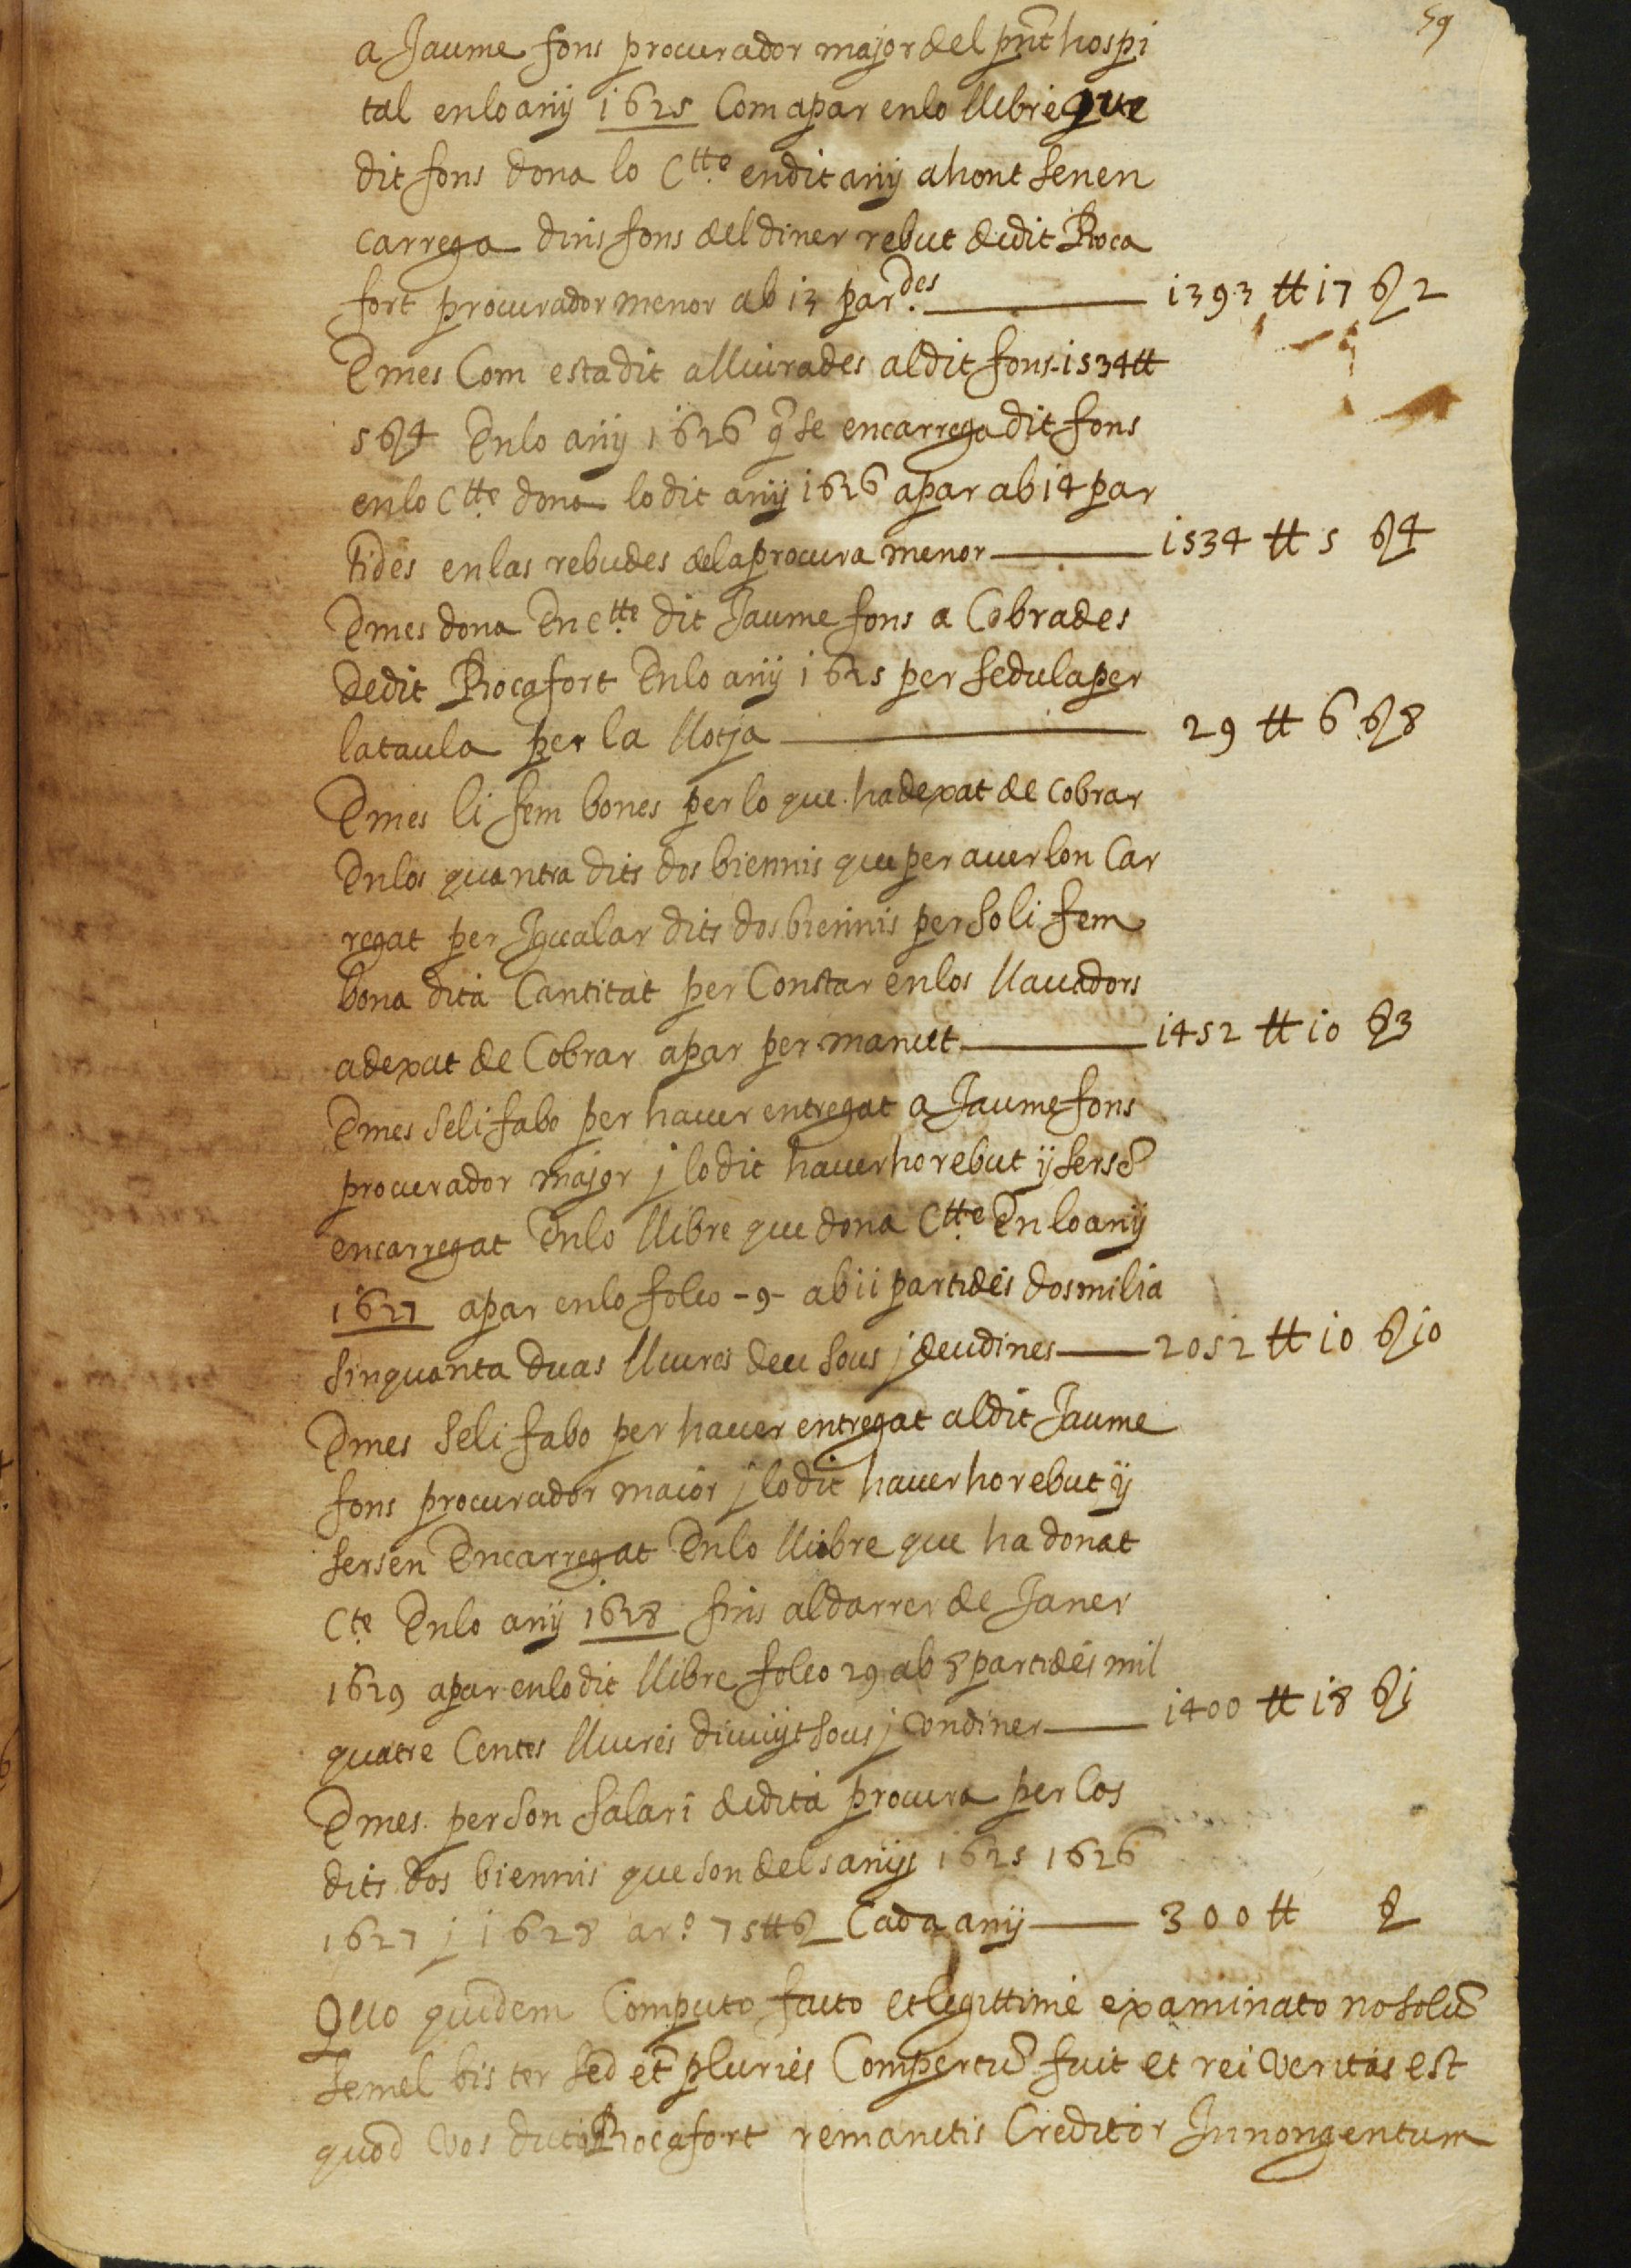 59
a Jaume fons procurador major del pnt hospi
tal en lo anij 1625 Com apar en lo llibre que
dit fons dona lo Ctte en dit anij ahont sen en
carrega dirs fons del diner rebut de dit Roca
fort procurador menor ab 13 par.des 1393 tt 17 ß 2
E mes Com esta dit a lliurades al dit fons 1534 tt
5 ß 4 En lo anij 1626 q̃ se encarrega dit fons
en lo Ctte dona lo dit anij 1626 apar ab 14 par
tides en las rebudes de la procura menor 1534 tt 5 ß 4
E mes dona En Ctte dit Jaume fons a Cobrades
de dit Rocafort En lo anij 1625 per sedula per
la taula per la llotja 29 tt 6 ß 8
E mes li fem bones per lo que ha dexat de cobrar
En los quantra dits dos biennis que per auerlon Car
regat per Igualar dits dos biennis per so li fem
bona dita Cantitat per Constar en los lleuadors
a dexat de Cobrar apar per manutt 1452 tt 10 ß 3
E mes seli fa bo per hauer entregat a Jaume fons
procurador major j lo dit hauerho rebut ij sersẽ
encarregat En lo llibre que dona Ctte En lo anij
1627 apar en lo foleo - 9 - ab 11 partides dos milia
sinquanta duas lliures deu sous j deu dines 2052 tt 10 ß 10
E mes seli fa bo per hauer entregat al dit Jaume
fons procurador maior j lo dit hauerho rebut ij
sersen Encarregat En lo llibre que ha donat
Cte En lo anij 1628 fins al darrer de Janer
1629 apar en lo dit llibre foleo 29 ab 8 partides mil
quatre Centes lliures diuuijt sous j Vn diner 1400 tt 18 ß j
E mes per son salari de dita procura per los
dits dos biennis que son dels anijs 1625 1626
1627 j 1628 a r.º 75 tt ß Cada anij 300 tt ß
Quo quidem Computo facto et legittime examinato no solũ
semel bis ter sed et pluries Compertũ fuit et rei veritas est
quod vos dicti Rocafort remanetis Creditor In nongentum